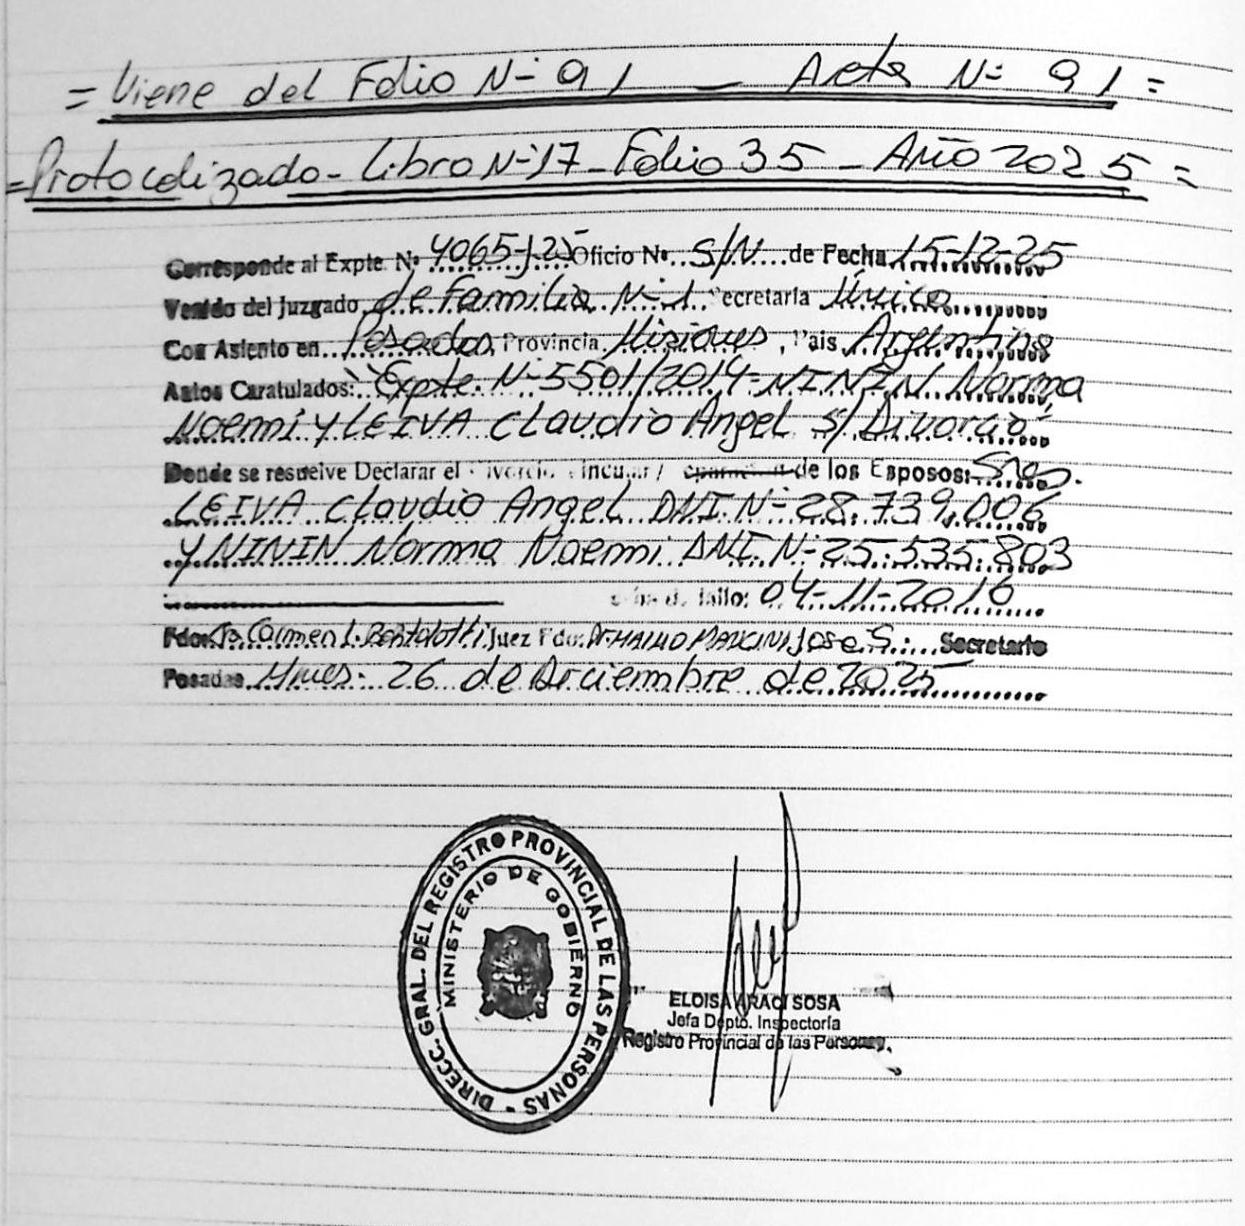 = Viene del Folio Nº 91 — Acta Nº 91 =
= Protocolizado - Libro Nº 17 - Folio 35 - Año 2025 =
Corresponde al Expte Nº 4065-J-25 Oficio Nº S/N de Fecha 15-12-25
Venido del Juzgado de Familia Nº 1 Secretaria Única
Con Asiento en Posadas, Provincia Misiones, Pais Argentina
Autos Caratulados: "Expte. Nº 5501/2014 - NININ Norma
Noemi y LEIVA Claudio Angel S/ Divorcio"
Donde se resuelve Declarar el Divorcio Vincular / de los Esposos: Sres.
LEIVA Claudio Angel DNI. Nº 28.739.006
y NININ Norma Noemi DNI. Nº 25.535.803
fallo: 04-11-2016
Fdo: Dra Carmen L. Juez Fdo: Dr. Jose S. Secretario
Posadas Mnes. 26 de Diciembre de 2025
DIRECC. GRAL. DEL REGISTRO PROVINCIAL DE LAS PERSONAS -
MINISTERIO DE GOBIERNO
ELOISA ARACI SOSA
Jefa Depto. Inspectoría
Registro Provincial de las Personas